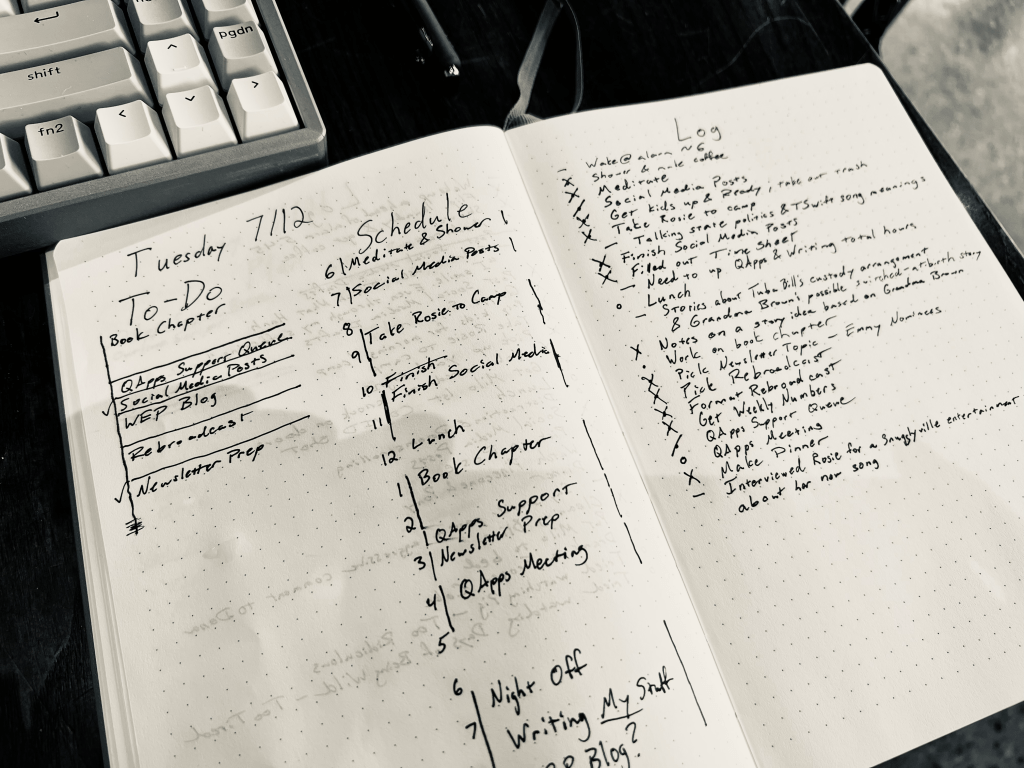 pgdn
shift
fn2
Tuesday 7/12
To-Do
Book Chapter
QApps Support Queue
Social Media Posts
WEP Blog
Rebroadcast
Newsletter Prep
Schedule
6 Meditate & Shower
7 Social Media Posts
8
Take Rosie to Camp
9
10 Finish
Finish Social Media
11
12 Lunch
1 Book Chapter
2
QApps Support
3 Newsletter Prep
QApps Meeting
4
5
6
Night Off
7 Writing My Stuff
Blog?
Log
Wake @ alarm ~6
Shower & make coffee
Meditate
Social Media Posts
Get kids up & Ready; take out trash
Take Rosie to camp
Talking state politics & TSwift song meanings
Finish Social Media Posts
Filled out Time Sheet
Need to up QApps & Writing total hours
Lunch
Stories about Bill's custody arrangement
& Grandma Brown's possible switched-at-birth story
Notes on a story idea based on Grandma Brown
Work on book chapter
Pick Newsletter Topic — Emmy Nominees
Pick Rebroadcast
Format Rebroadcast
Get Weekly Numbers
QApps Support Queue
QApps Meeting
Make Dinner
Interviewed Rosie for a Snuggyville entertainment
about her new song